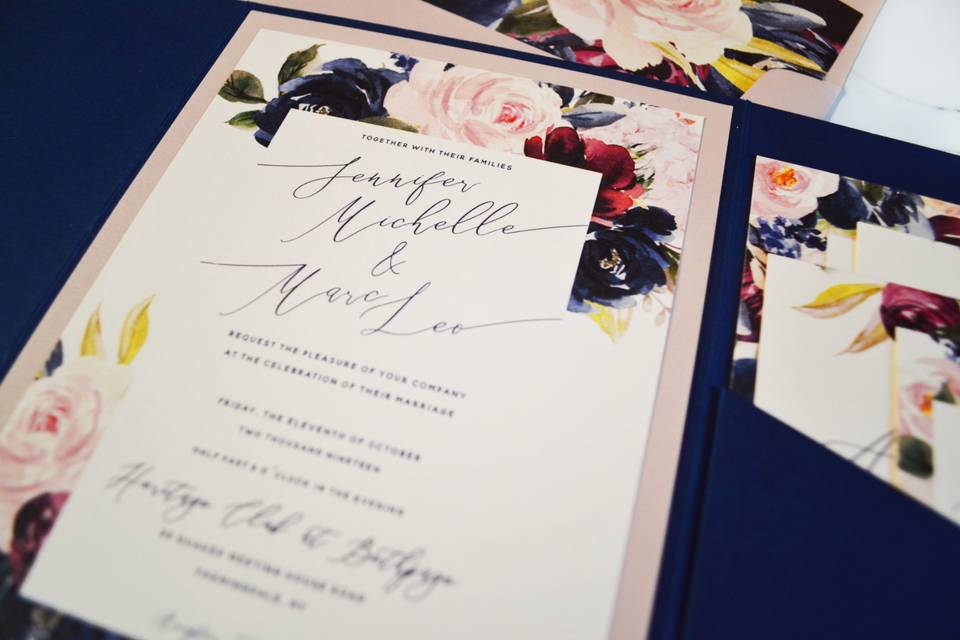 TOGETHER WITH THEIR FAMILIES
Jennifer
Michelle
&
Marc
Leo
REQUEST THE PLEASURE OF YOUR COMPANY
AT THE CELEBRATION OF THEIR MARRIAGE
FRIDAY, THE ELEVENTH OF OCTOBER
TWO THOUSAND NINETEEN
HALF PAST 6 O'CLOCK IN THE EVENING
Heritage Club at Bethpage
QUAKER MEETING HOUSE ROAD
FARMINGDALE, NY